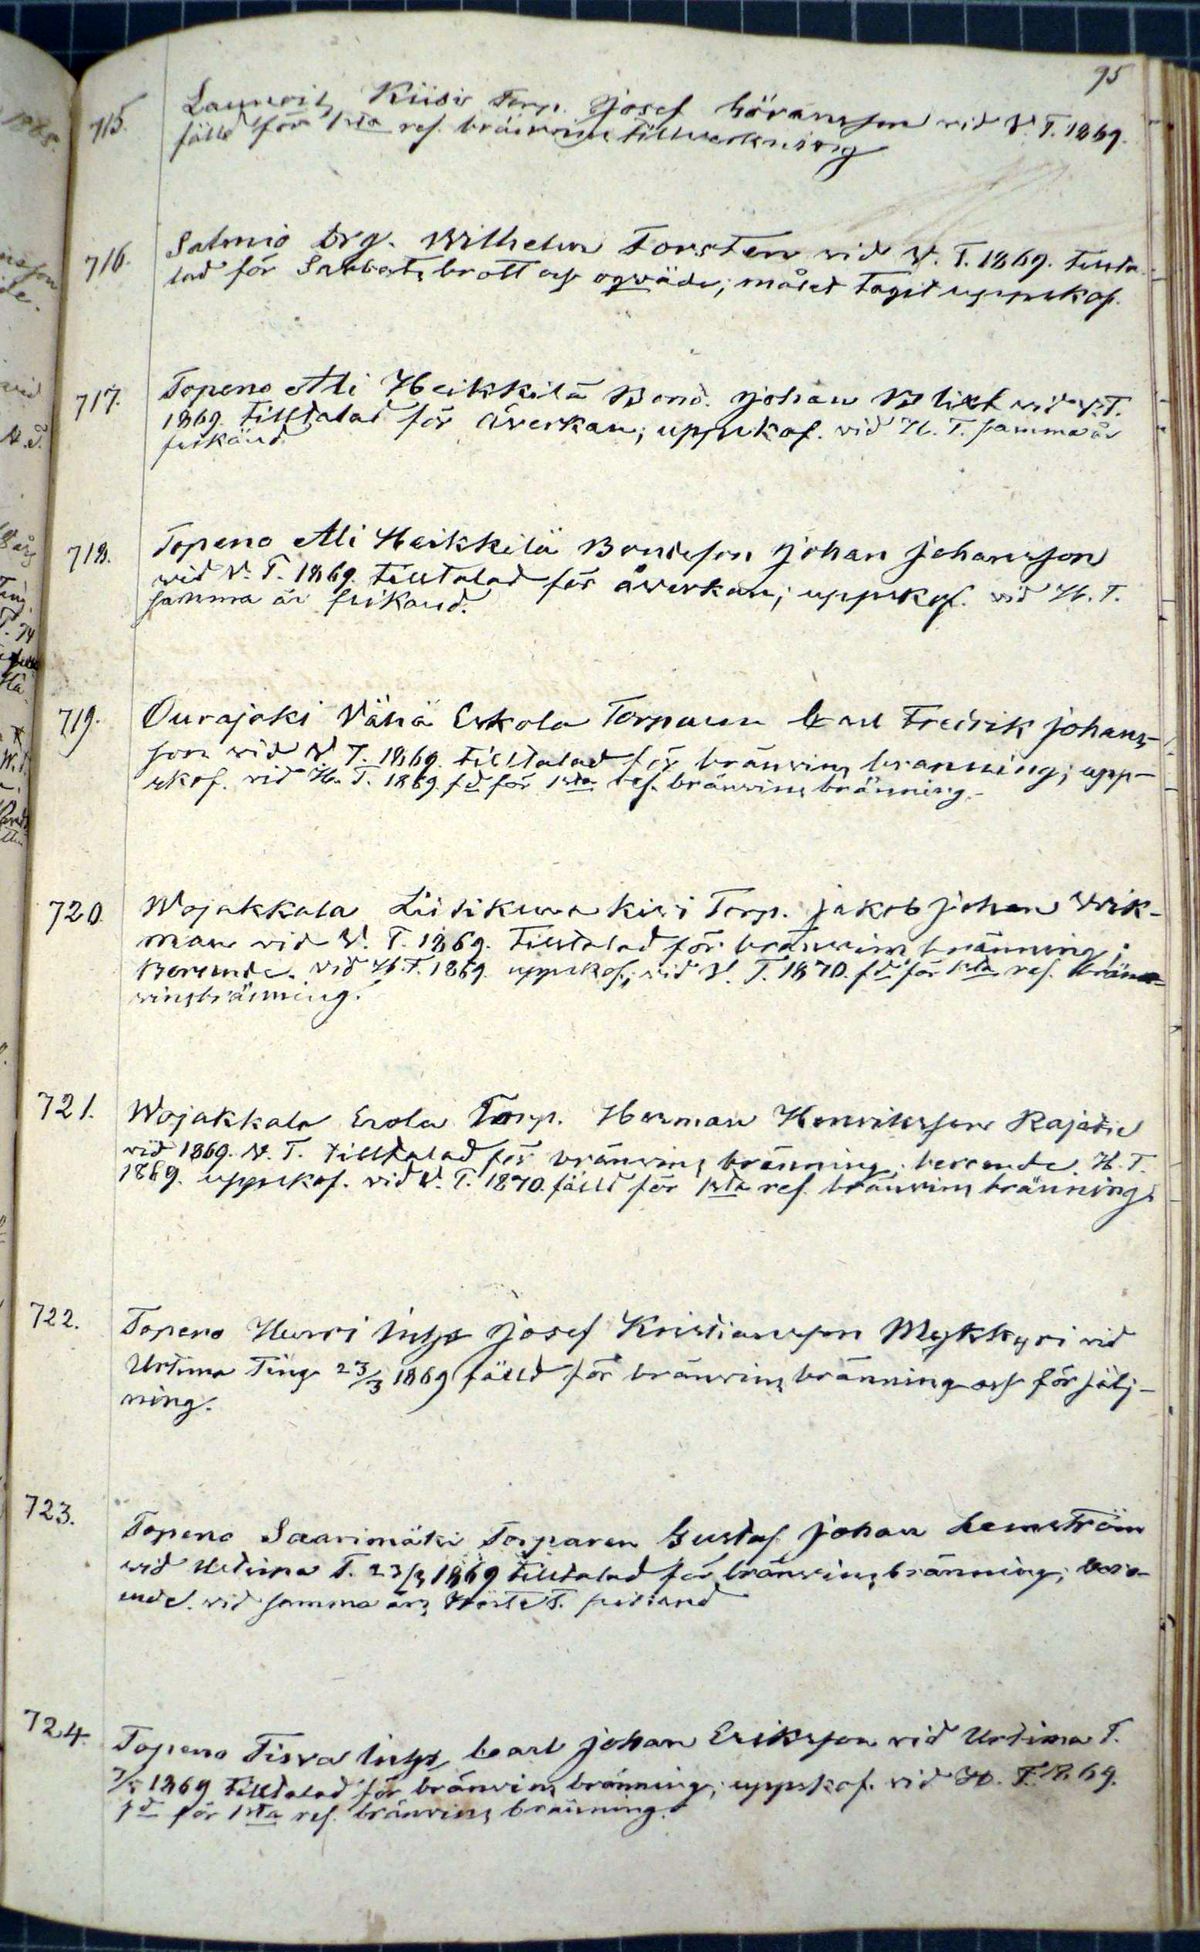 95
715. Launois Kiisis Torp. Josef Göransson vid V. T. 1869.
fälld för 1sta ref. bränvins tillverkning
716. Salmis Drg. Wilhelm Forstén vid V. T. 1869. tillta-
lad för Sabbatsbrott och oqväde; målet taget uppskof.
717. Topeno Ali Heikkilä Bond. Johan Blixt vid V. T.
1869. tilltalad för åverkan; uppskof. vid H. T. samma år
frikänd
718. Topeno Ali Heikkilä Bondeson Johan Johansson
vid V. T. 1869. tilltalad för åverkan; uppskof. vid H. T.
samma år frikänd.
719. Ourajoki Vähä Eskola Torparen Carl Fredrik Johans-
son vid V. T. 1869. tilltalad för bränvins bränning; upp-
skof. vid H. T. 1869. fd för 1sta ref. bränvins bränning.
720. Wojakkala Torp. Jakob Johan Wik-
man vid V. T. 1869. tilltalad för bränvins bränning;
Beroende. vid H. T. 1869. uppskof; vid V. T. 1870. fd för 1sta ref. bränn-
vinsbränning.
721. Wojakkala Erola Torp. Herman Henriksson Rajatie
vid 1869. V. T. tilltalad för bränvins bränning; beroende. H. T.
1869. uppskof. vid V. T. 1870. fälld för 1sta ref. bränvins bränning.
722. Topeno Hurri Inhs Josef Kristiansson Mykkyri vid
Urtima Ting 23/3 1869 fälld för bränvins bränning och försälj-
ning.
723. Topeno Saarimäki Torparen Gustaf Johan Lemström
vid Urtima T. 23/3 1869 tilltalad för bränvins bränning; bero-
ende. vid samma års Höste T. frikänd
724. Topeno Tirva Inhs Carl Johan Eriksson vid Urtima T.
1869 tilltalad för bränvins bränning; uppskof. vid H. T. 1869.
fd för 1sta ref. bränvins bränning.